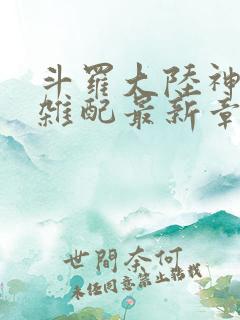 斗羅大陸神
雜配最新章
世間奈何
未经同意禁止转载